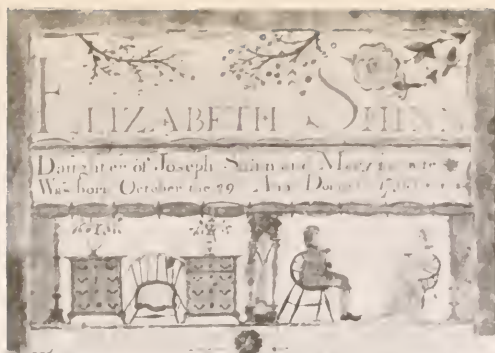 ELIZABETH SHINN
Daughter of Joseph Shinn and Mary his wife
Was born October the 29 Ano Domini